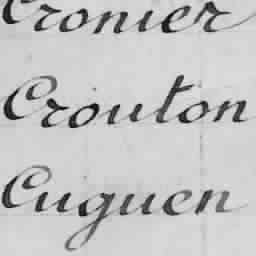 Cronier
Crouton
Cuguen